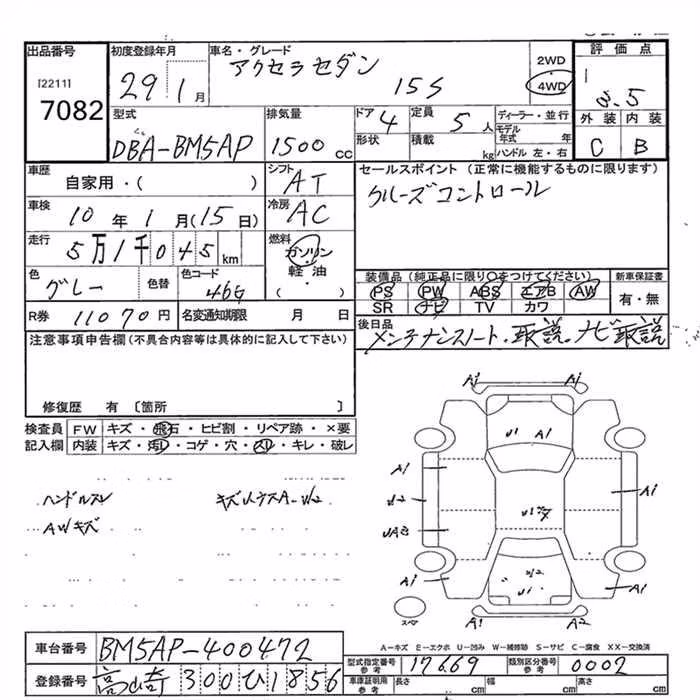 出品番号 初度登録年月 車名・グレード 評価点
[2211] 29 1月 アクセラセダン 15S 2WD 4WD 3.5
7082 外装 内装
型式 排気量 ドア 4 定員 5人 ディーラー・並行
DBA-BM5AP 1500cc 形状 積載 kg モデル年式 年 C B
ハンドル 左・右
車歴 シフト セールスポイント (正常に機能するものに限ります)
自家用・( ) AT クルーズコントロール
車検 冷房
10年1月(15日) AC
走行 燃料
5万1千045km ガソリン
色 色替 色コード 軽油 装備品 (純正品に限り○をつけてください) 新車保証書
グレー 46G ( ) PS PW ABS エアB AW 有・無
SR ナビ TV カワ
R券 11070円 名変通知期限 月 日 後日品
メンテナンスノート・取説・ナビ取説
注意事項申告欄(不具合内容等は具体的に記入して下さい)
修復歴 有 〔箇所 〕
検査員 FW キズ・飛石・ヒビ割・リペア跡・×要
記入欄 内装 キズ・汚レ・コゲ・穴・スリ・キレ・破レ
ハンドルスレ
AWキズ
A1 A1
U1 A1
A1
U2 A1
A1 U2 A1
U1
A1 A2
スペア
A-キズ E-エクボ U-凹み W-補修跡 S-サビ C-腐食 XX-交換済
車台番号 BM5AP-400472
型式指定番号 参考 17669 類別区分番号 参考 0002
登録番号 300ひ1856
車庫証明用 参考 長さ cm 幅 cm 高さ cm